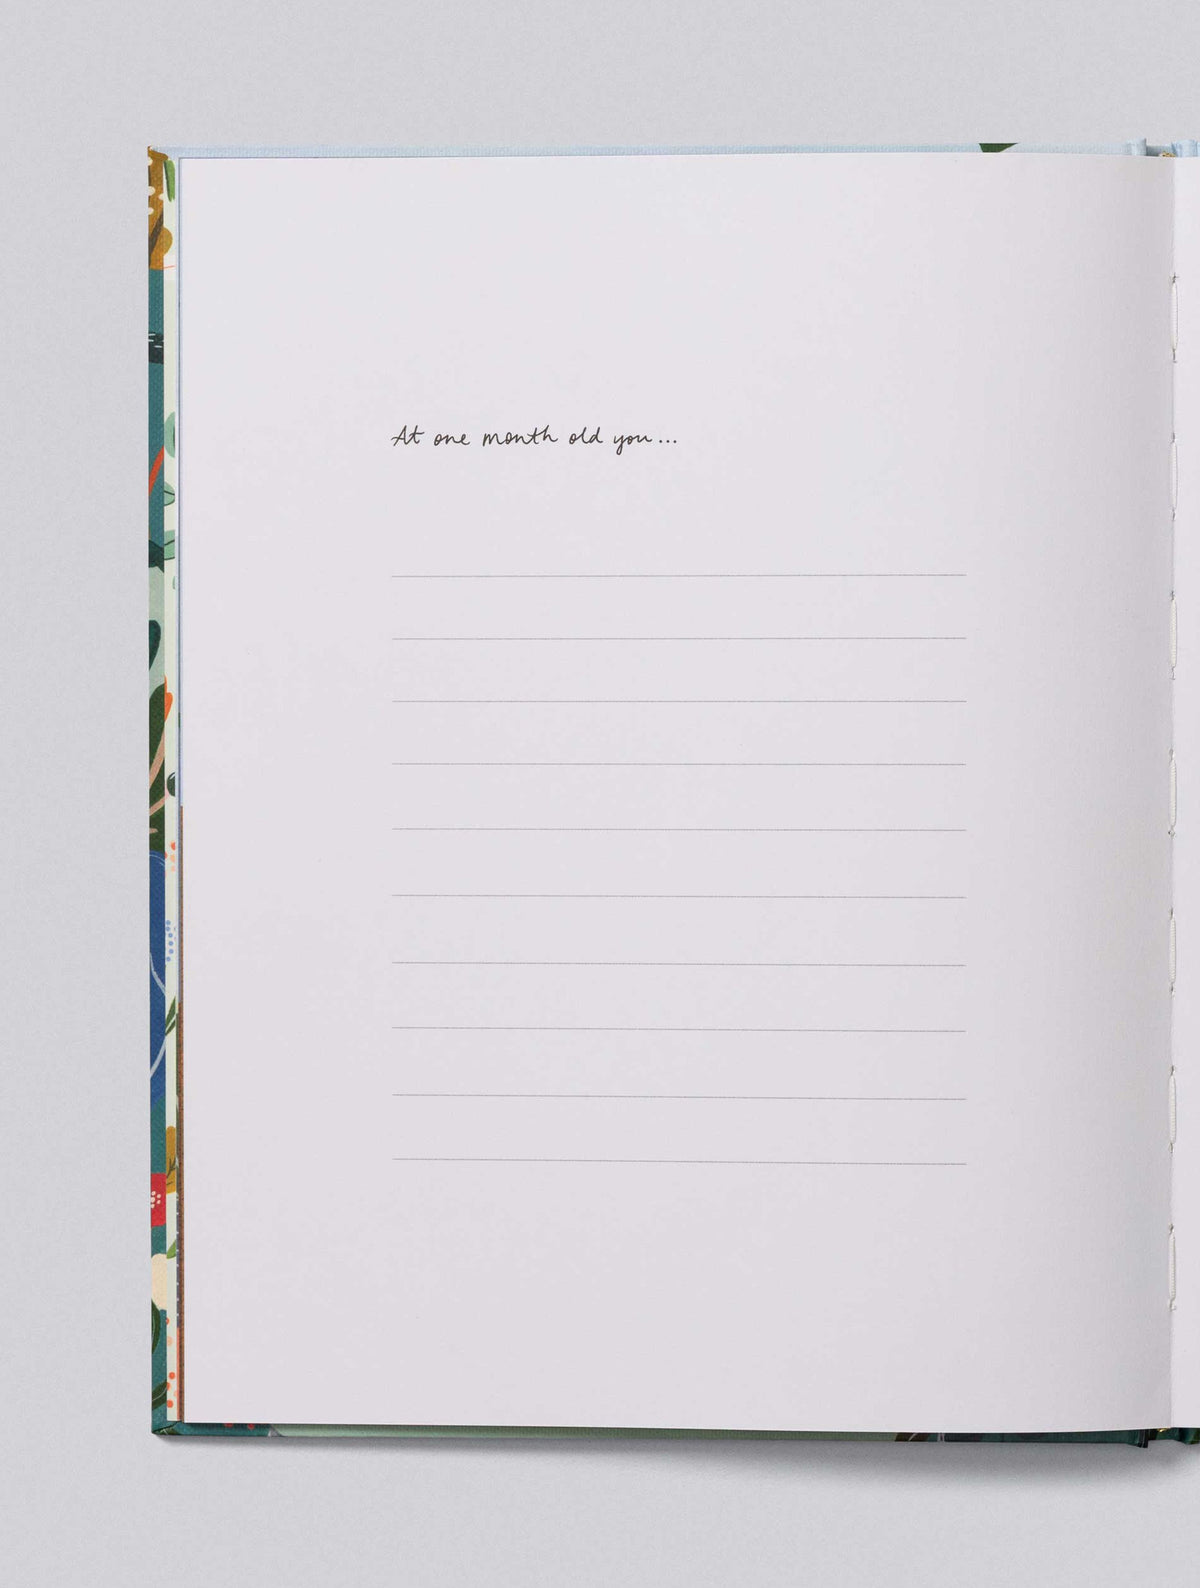 At one month old you...